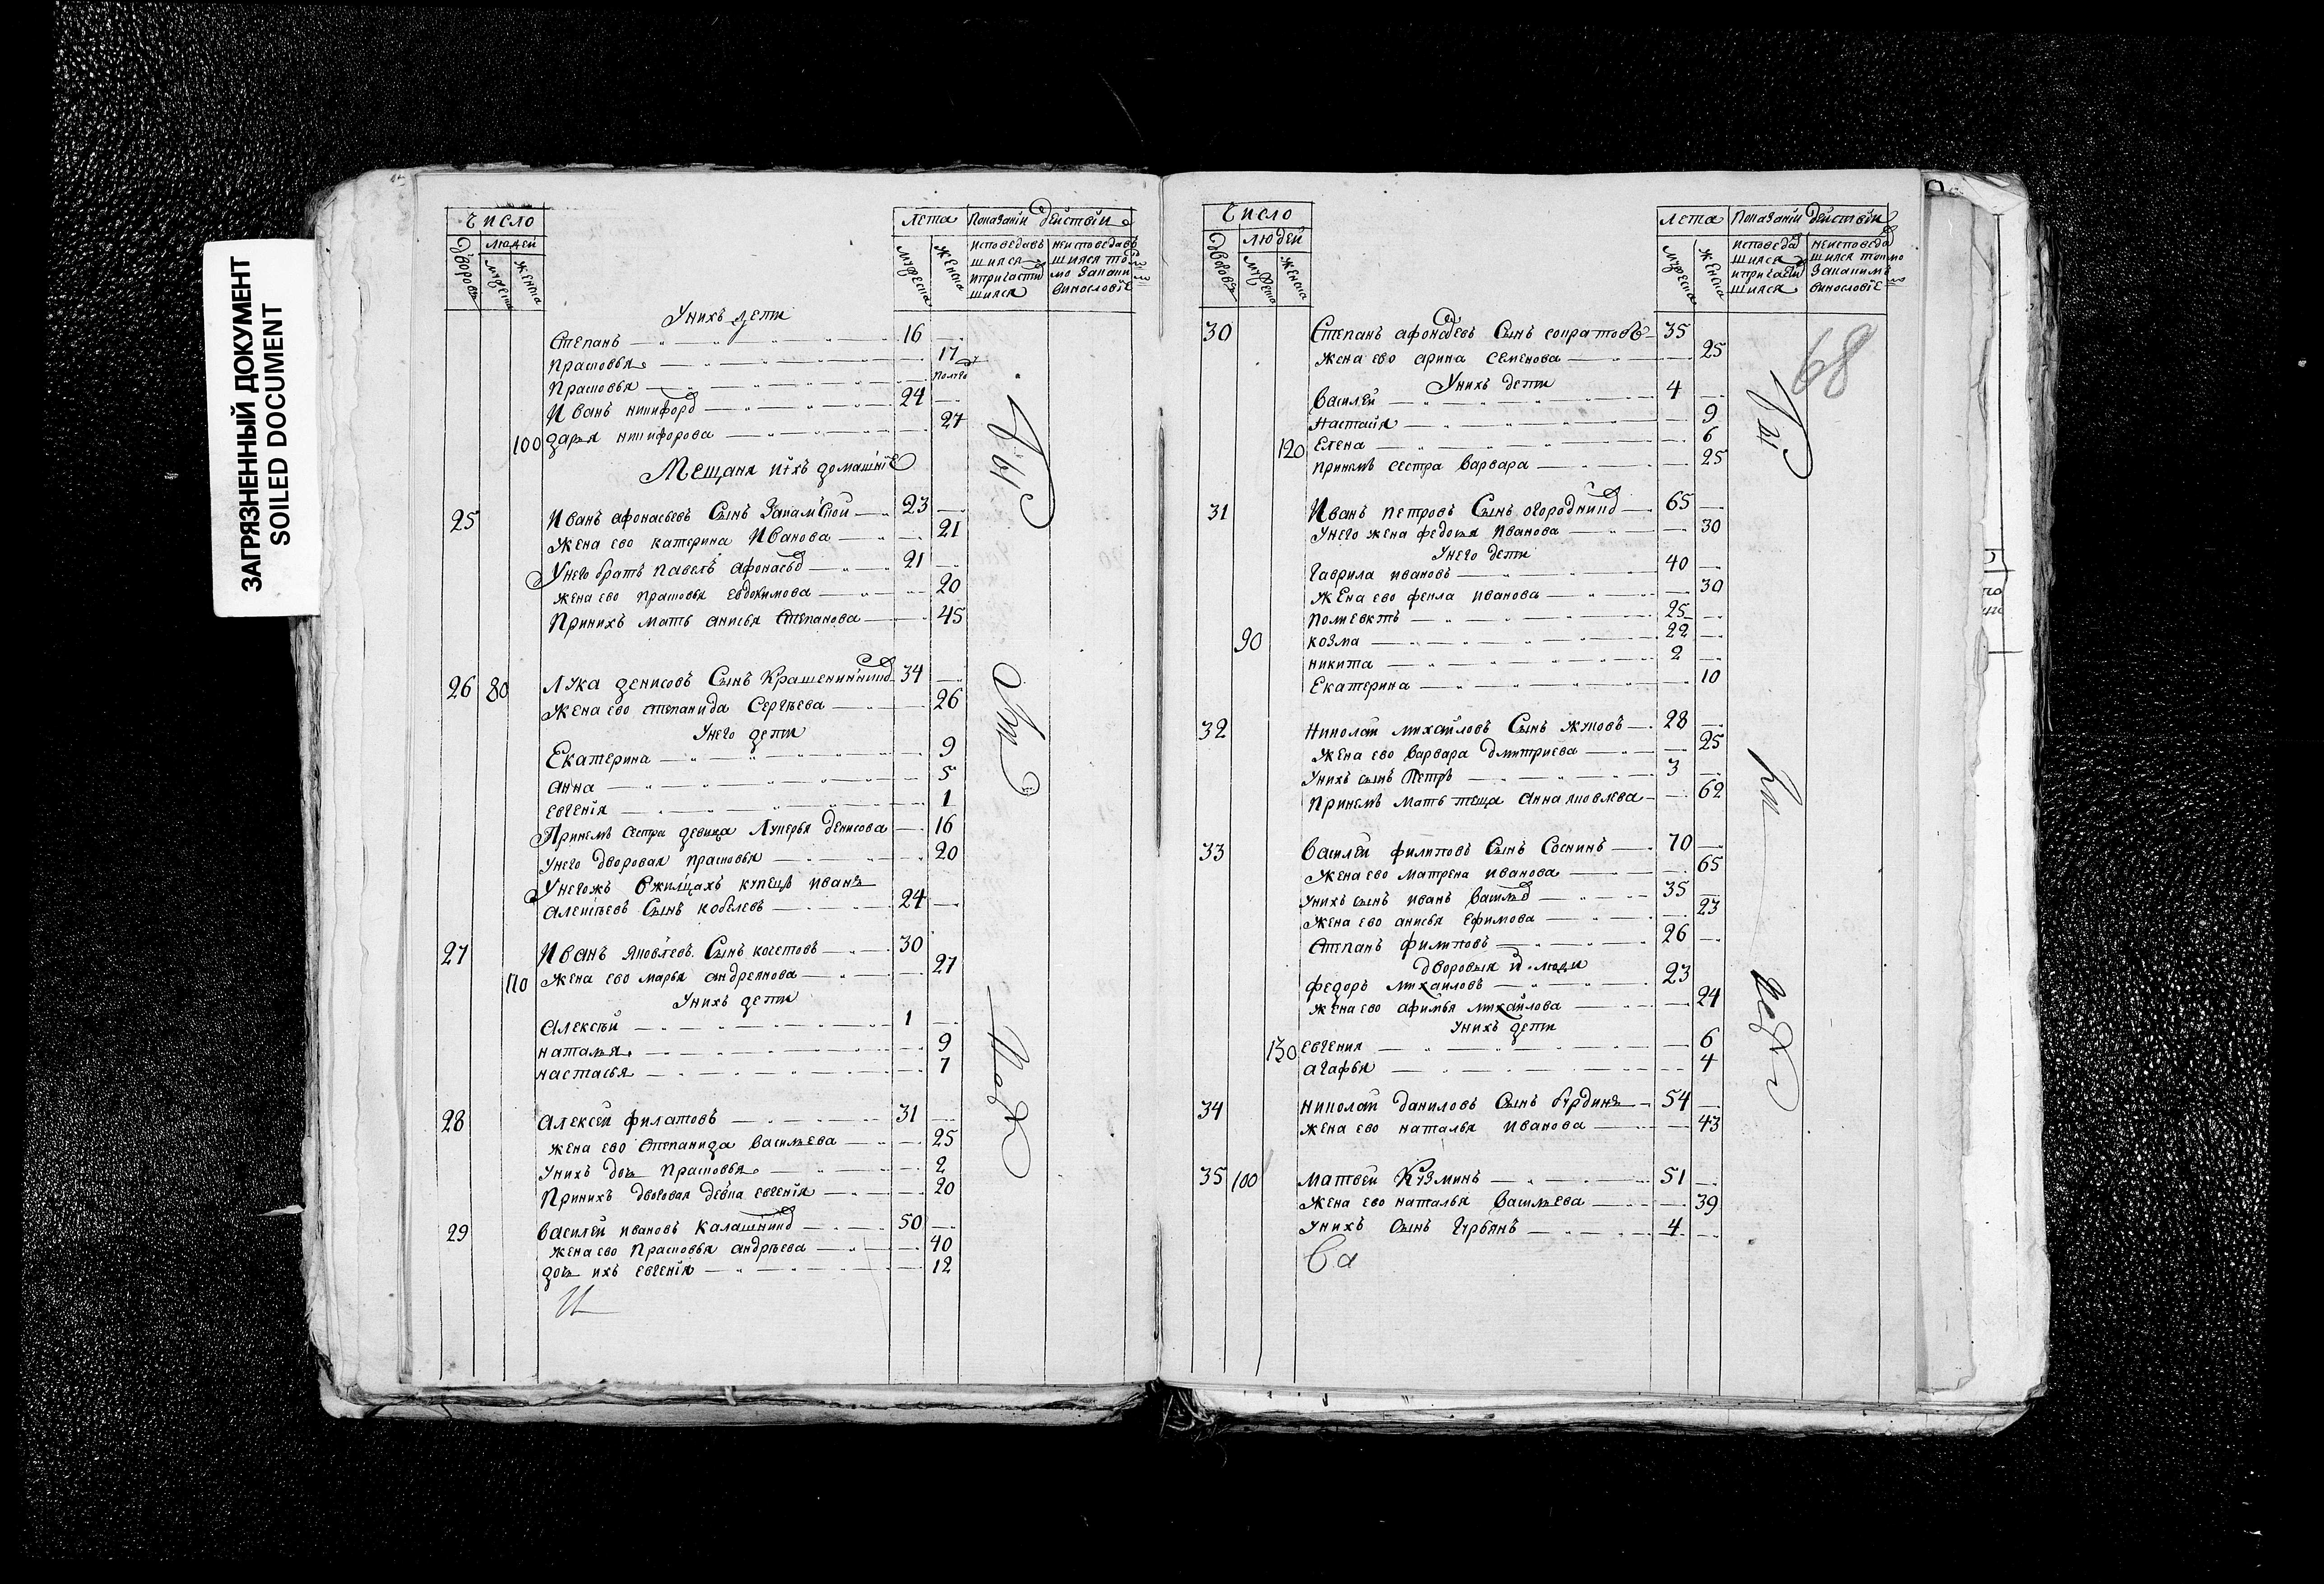 ЗАГРЯЗНЕННЫЙ ДОКУМЕНТ
SOILED DOCUMENT
Число
Дворовъ
людей
мужеска
женска
лета
мужеска
женска
Показанiи действiи
исповедавъ
шился
ипричасти
шился
неисповедавъ
шился токъ
мо запаки
винословiе
Унихъ дети
Степанъ 16
Прасковья 17
Прасковья полго
Иванъ никифоро 24
100 дарья никифорова 27
Мещаня иiхъ домашнiе
25 Иванъ афонасьевъ Сынъ 23
Жена ево катерина Иванова 21
Унего братъ павелъ афонасьв 21
жена ево прасковья Евдокимова 20
Принихъ мать анисья Степанова 45
26 80 Лука денисовъ Сынъ Крашенинник 34
Жена ево степанида Сергѣева 26
Унего дети
Екатерина 9
анна 5
евгенiя 1
Принемъ сестра девица Лукерья денисова 16
Унего дворовая прасковья 20
Унегожъ вжилцахъ купецъ иванъ
алексѣевъ Сынъ кобелевъ 24
27 Иванъ яковлевъ Сынъ кочетовъ 30
110 Жена ево марья андреянова 27
Унихъ дети
алексѣй 1
наталья 9
настасья 7
28 алексей филатовъ 31
жена ево Степанида васильева 25
Унихъ дочь прасковья 2
Принихъ дворовая девка евгенiя 20
29 василей ивановъ калашник 50
жена ево прасковья андрѣева 40
дочь ихъ евгенiя 12
И
Число
Дворовъ
людей
мужеска
женска
лета
мужеска
женска
Показанiи действiи
исповеда
шился
ипричасти
шился
неисповеда
шился токмо
запакимъ
винословiе
68
30 Степанъ афонасьевъ Сынъ сократовъ 35
жена ево арина семенова 25
Унихъ дети
василей 4
настасiя 9
120 Елена 6
принемъ сестра варвара 25
31 Иванъ петровъ Сынъ огородник 65
Унего жена федосья иванова 30
Унего дети
гаврила ивановъ 40
жена ево фекла иванова 30
полиевктъ 25
90 козма 22
никита 2
Екатерина 10
32 николай михайловъ Сынъ жуковъ 28
жена ево варвара дмитриева 25
Унихъ сынъ Петръ 3
принемъ мать теща анна яковлева 62
33 василей филиповъ Сынъ Соснинъ 70
жена ево матрена иванова 65
унихъ сынъ иванъ васильв 35
жена ево анисья Ефимова 23
Степанъ филиповъ 26
дворовыя и люди
федоръ михаиловъ 23
жена ево афимья михайлова 24
Унихъ дети
130 евгения 6
агафья 4
34 николай даниловъ Сынъ бурдинъ 54
жена ево наталья иванова 43
35 100 матвей Кузминъ 51
жена ево наталья васильева 39
Унихъ Сынъ гурьянъ 4
Ва